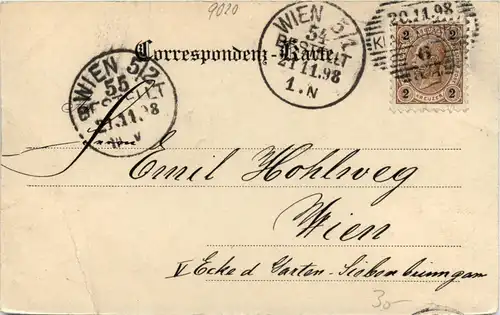 9020
WIEN 5/1
54
BESTELLT
21.11.98
1.N
20.11.98
6
2 2
KREUZER
2 2
Correspondenz-Karte
WIEN 5/2
55
BESTELLT
21.11.98
Emil Hohlweg
Wien
V Ecke d Garten-
30-